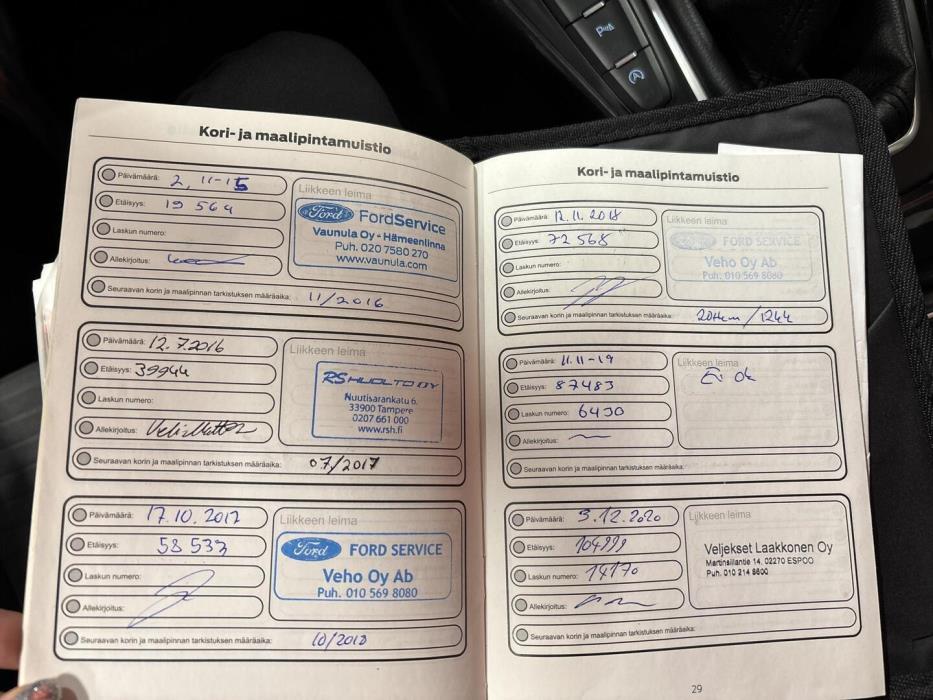 Kori- ja maalipintamuistio
Päivämäärä: 2.11-15
Etäisyys: 19 564
Laskun numero:
Allekirjoitus:
Liikkeen leima
Ford FordService
Vaunula Oy - Hämeenlinna
Puh. 020 7580 270
www.vaunula.com
Seuraavan korin ja maalipinnan tarkistuksen määräaika: 11/2016
Päivämäärä: 12.7.2016
Etäisyys: 39944
Laskun numero:
Allekirjoitus:
Liikkeen leima
RS HUOLTO OY
Nuutisarankatu 6.
33900 Tampere
0207 661 000
www.rsh.fi
Seuraavan korin ja maalipinnan tarkistuksen määräaika: 07/2017
Päivämäärä: 17.10.2017
Etäisyys: 58 533
Laskun numero:
Allekirjoitus:
Liikkeen leima
Ford FORD SERVICE
Veho Oy Ab
Puh. 010 569 8080
Seuraavan korin ja maalipinnan tarkistuksen määräaika: 10/2018
Kori- ja maalipintamuistio
Päivämäärä: 12.11.2018
Etäisyys: 72 568
Laskun numero:
Allekirjoitus:
Liikkeen leima
Ford FORD SERVICE
Veho Oy Ab
Puh. 010 569 8080
Seuraavan korin ja maalipinnan tarkistuksen määräaika: 20tkm/12kk
Päivämäärä: 11.11-19
Etäisyys: 87483
Laskun numero: 6430
Allekirjoitus:
Liikkeen leima
Ei ok
Seuraavan korin ja maalipinnan tarkistuksen määräaika:
Päivämäärä: 3.12.2020
Etäisyys: 104999
Laskun numero: 14170
Allekirjoitus:
Liikkeen leima
Veljekset Laakkonen Oy
Martinsillantie 14, 02270 ESPOO
Puh. 010 214 8600
Seuraavan korin ja maalipinnan tarkistuksen määräaika:
29